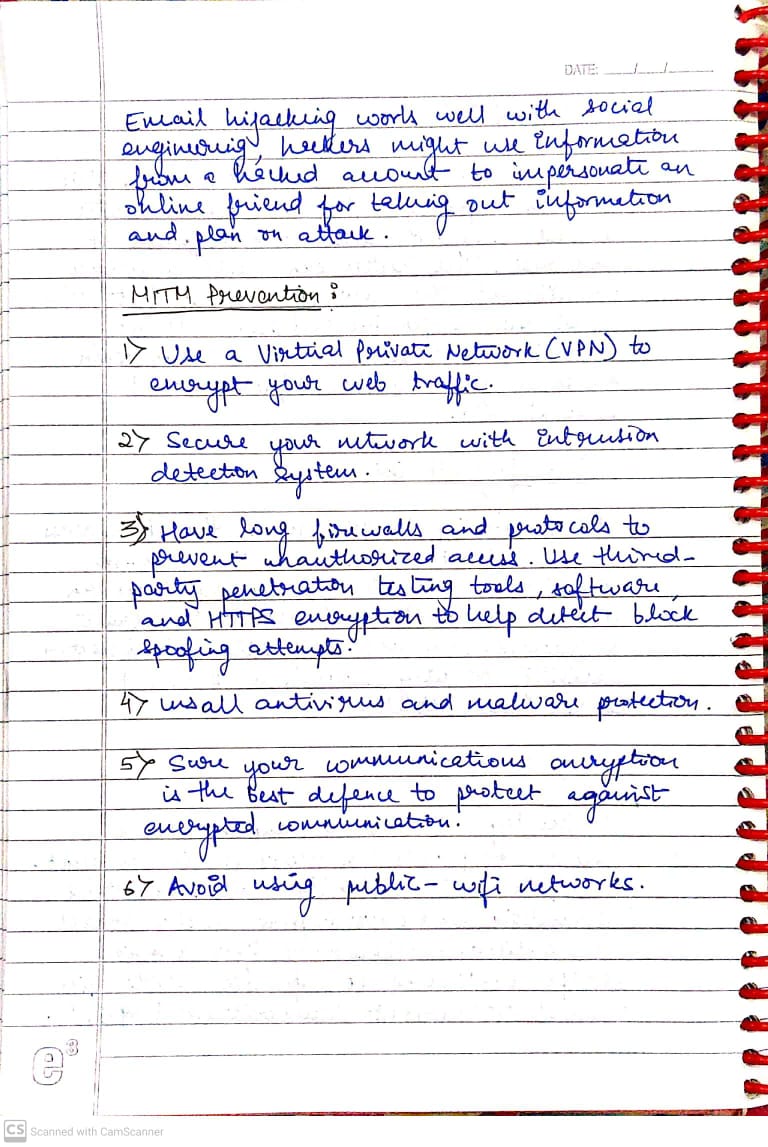 DATE: __/__/____
Email hijacking works well with social
engineering, hackers might use information
from a hacked account to impersonate an
online friend for taking out information
and plan on attack.
MITM Prevention :
1) Use a Virtual Private Network (VPN) to
encrypt your web traffic.
2) Secure your network with intrusion
detection system.
3) Have long firewalls and protocols to
prevent unauthorized access. Use thired-
party penetration testing tools, software,
and HTTPS encryption to help detect block
spoofing attempts.
4) insall antivirus and malware protection.
5) Sure your communications encryption
is the best defence to protect against
encrypted communication.
6) Avoid using public- wifi networks.
e3
CS Scanned with CamScanner